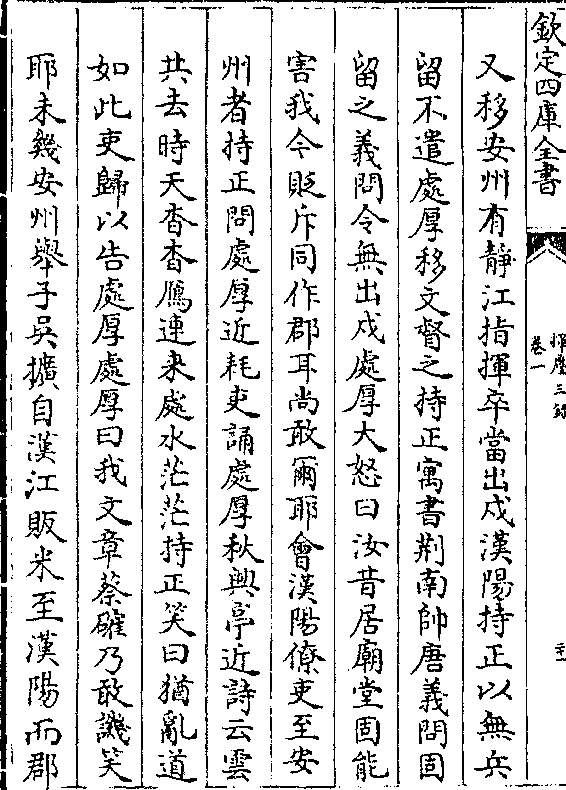 欽定四庫全書
揮麈三錄
卷一
又移安州有静江指揮卒當出戍漢陽持正以無兵
留不遣處厚移文督之持正寓書荆南帥唐義問固
留之義問令無出戍處厚大怒曰汝昔居廟堂固能
害我今貶斥同作郡耳尚敢爾耶會漢陽僚吏至安
州者持正問處厚近耗吏誦處厚秋興亭近詩云雲
共去時天杳杳鴈連来處水茫茫持正笑曰猶亂道
如此吏歸以告處厚處厚曰我文章蔡確乃敢譏笑
耶未幾安州舉子吳擴自漢江販米至漢陽而郡